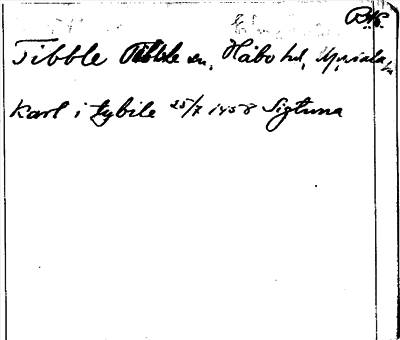 Tibble Tibble sn, Håbo hd, Upsala
Karl i tybile 25/7 1458 Sigtuna